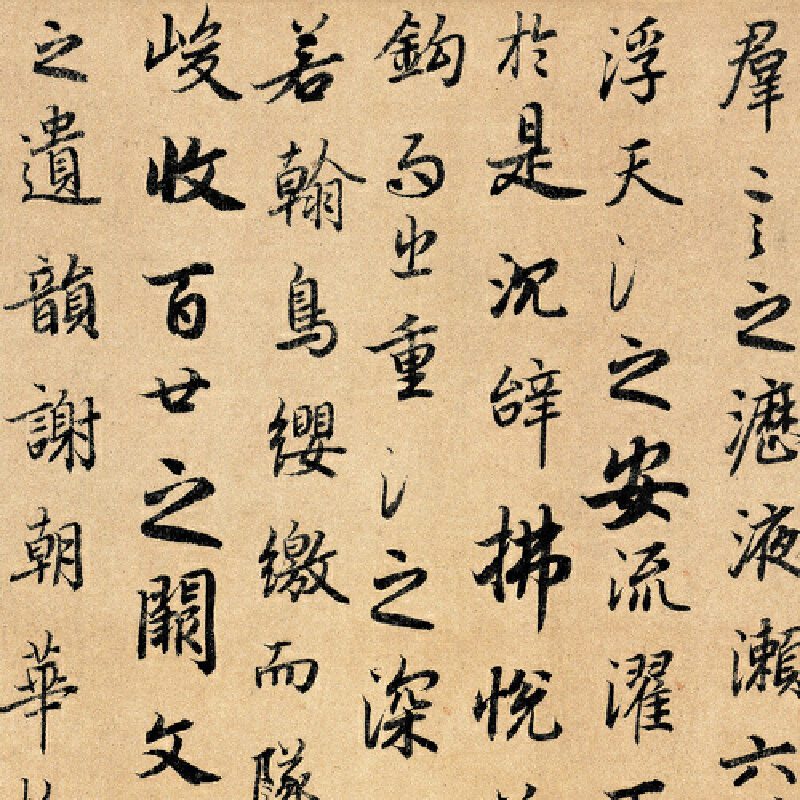 羣言之瀝液瀨六
浮天氵之安流濯
於是沉辝拂悅
鈎而出重氵之深
若翰鳥纓繳而隊
峻收百廿之闕文
之遺韻謝朝華